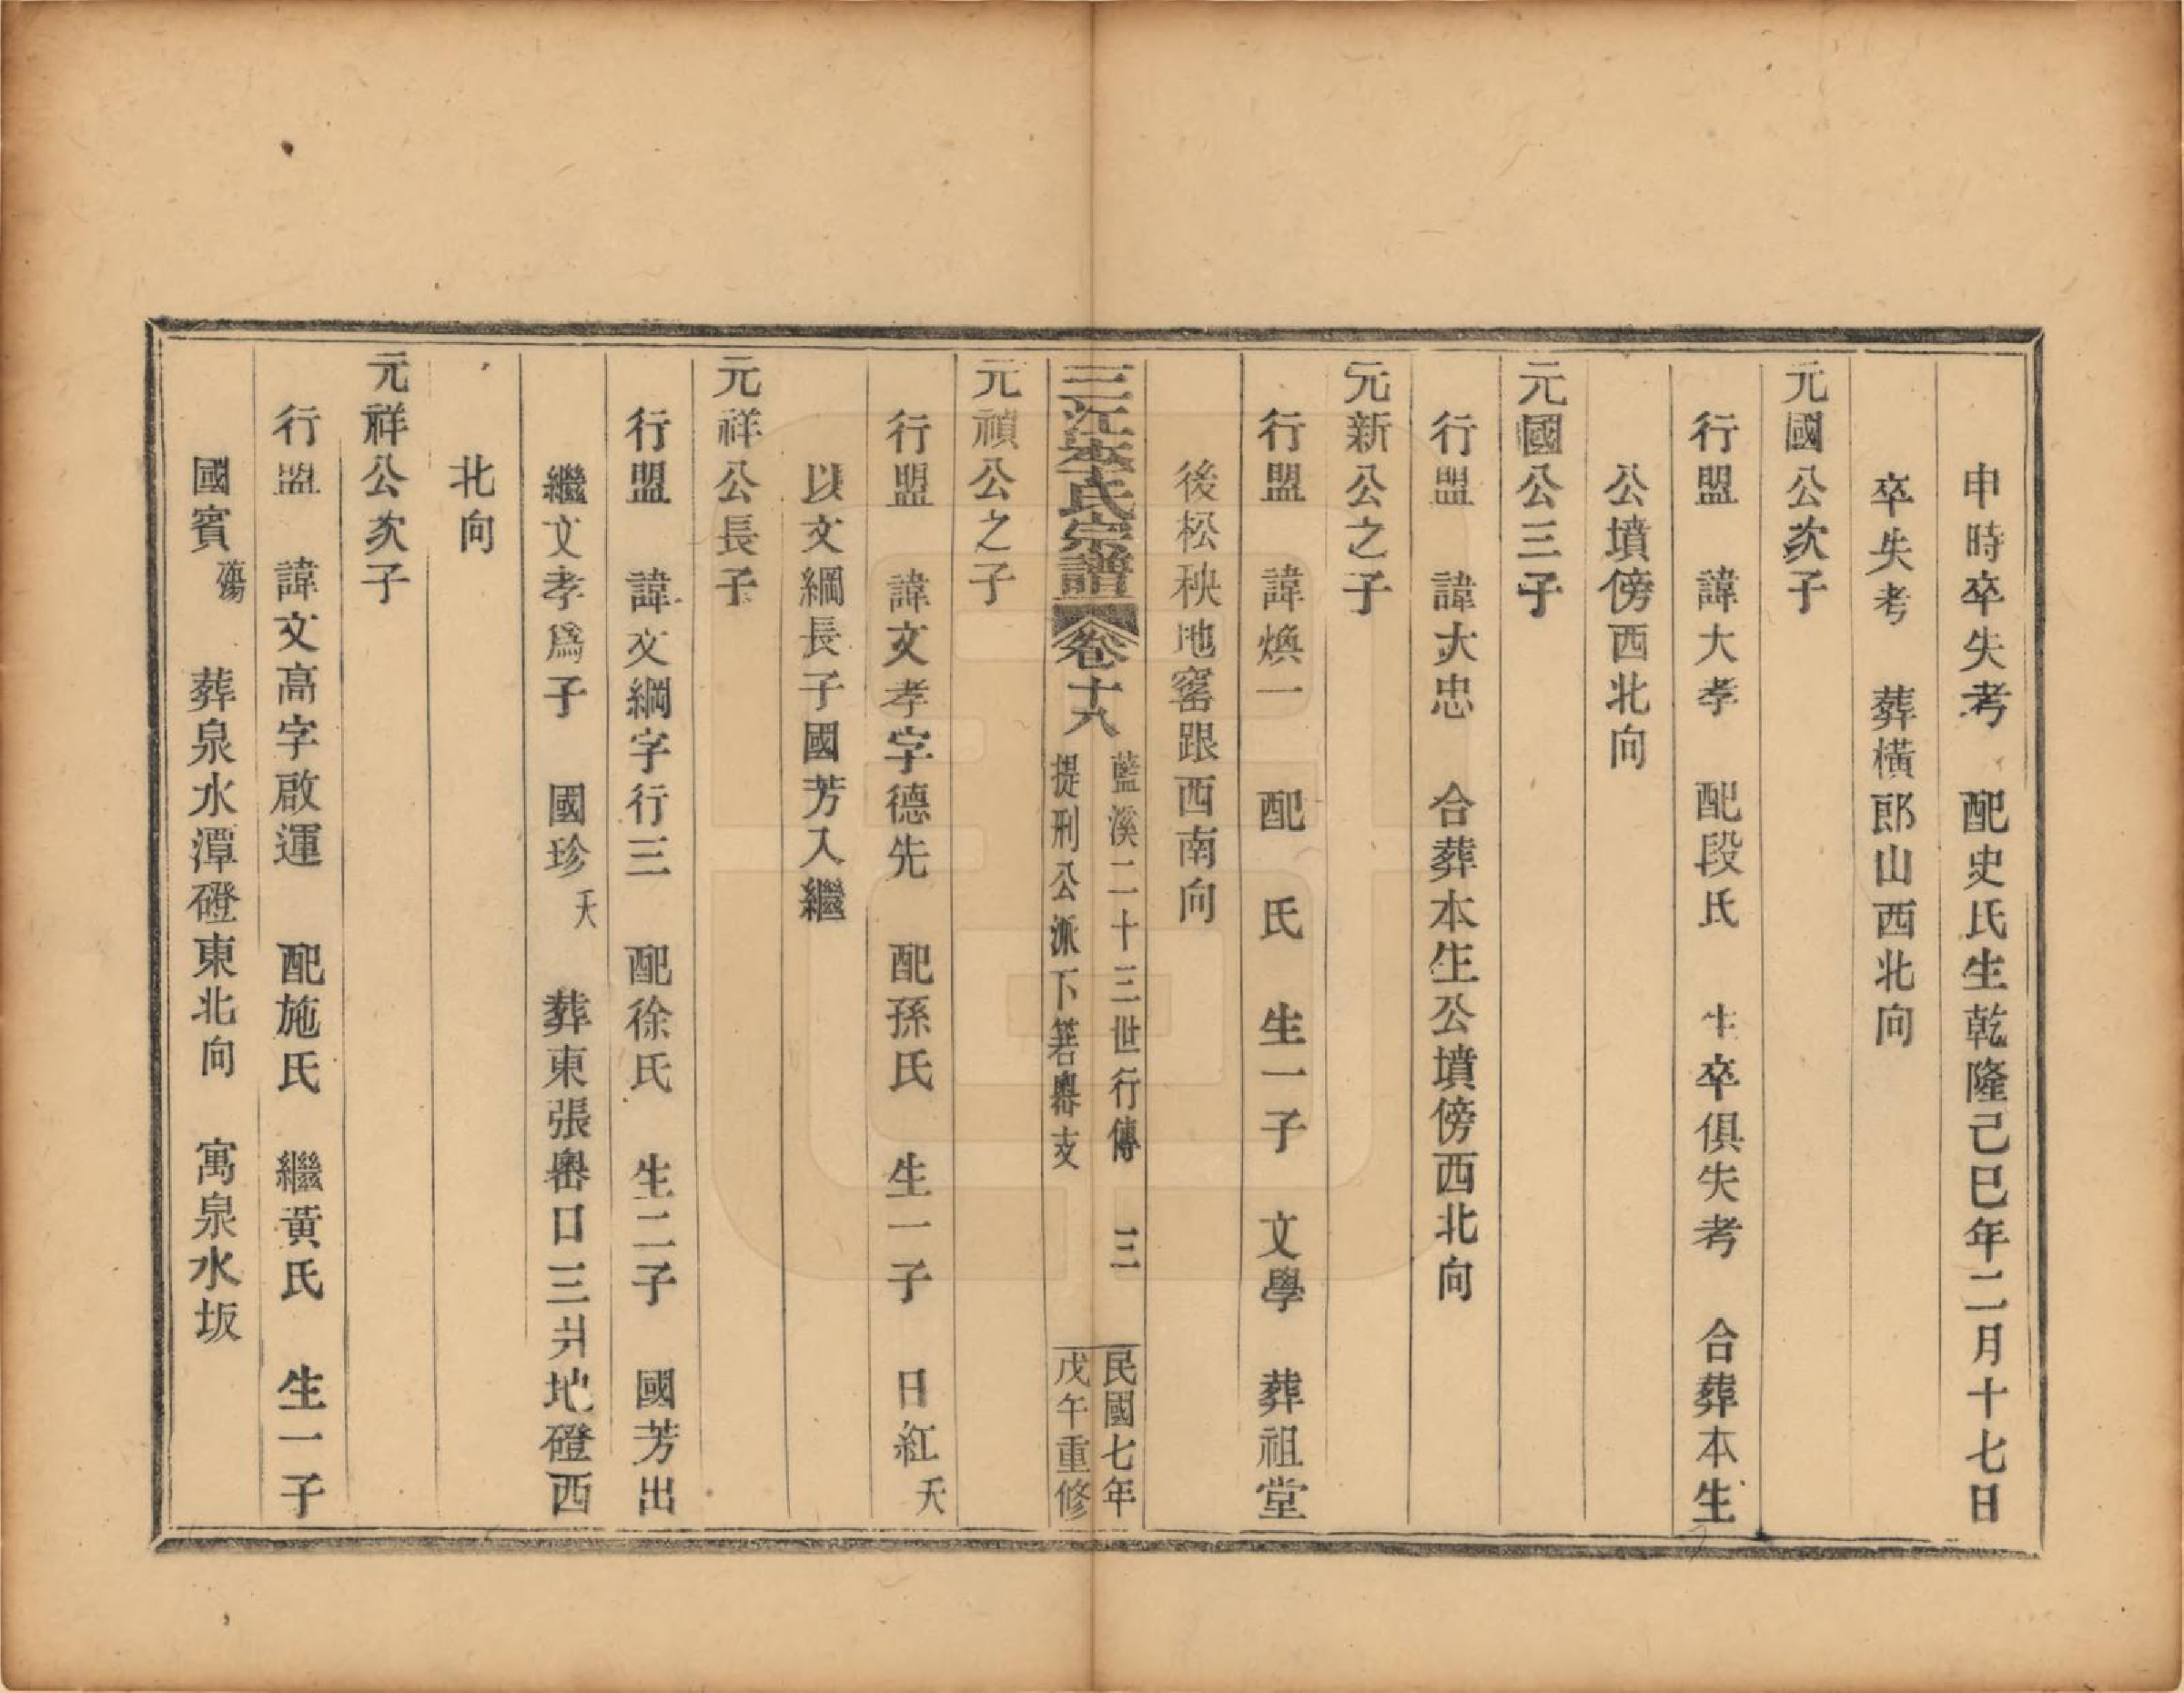 申時卒失考　配史氏生乾隆己巳年二月十七日
卒失考　葬橫郎山西北向
元國公次子
行盟　諱大孝　配段氏　生卒俱失考　合葬本生
公墳傍西北向
元國公三子
行盟　諱大忠　合葬本生公墳傍西北向
元新公之子
行盟　諱煥一　配　氏　生一子　文學　葬祖堂
後松秧地窰跟西南向
三江李氏宗譜　卷十八　藍溪二十三世行傳　三　民國七年
提刑公派下箬嶴支　戊午重修
元禎公之子
行盟　諱文孝字德先　配孫氏　生一子　日紅夭
以文綱長子國芳入繼
元祥公長子
行盟　諱文綱字行三　配徐氏　生二子　國芳出
繼文孝爲子　國珍夭　葬東張嶴口三爿地磴西
北向
元祥公次子
行盟　諱文高字啟運　配施氏　繼黃氏　生一子
國賓殤　葬泉水潭磴東北向　寓泉水坂